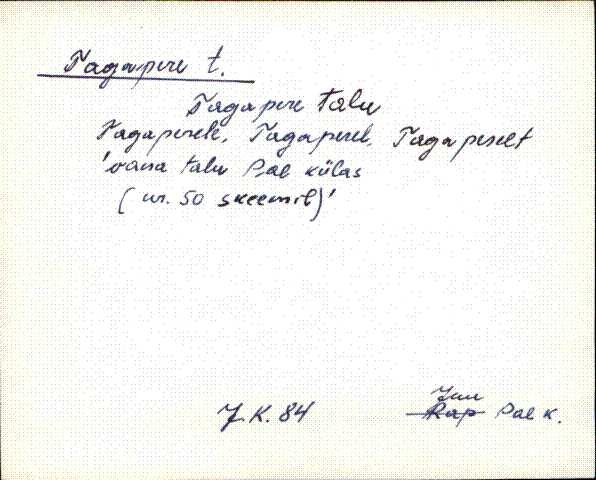 Tagapere t.
Tagapere talu
Tagaperele, Tagaperel, Tagaperelt
'vana talu Pae külas
(nr. 50 skeemil)'
J.K. 84
Juu
Rap Pae k.